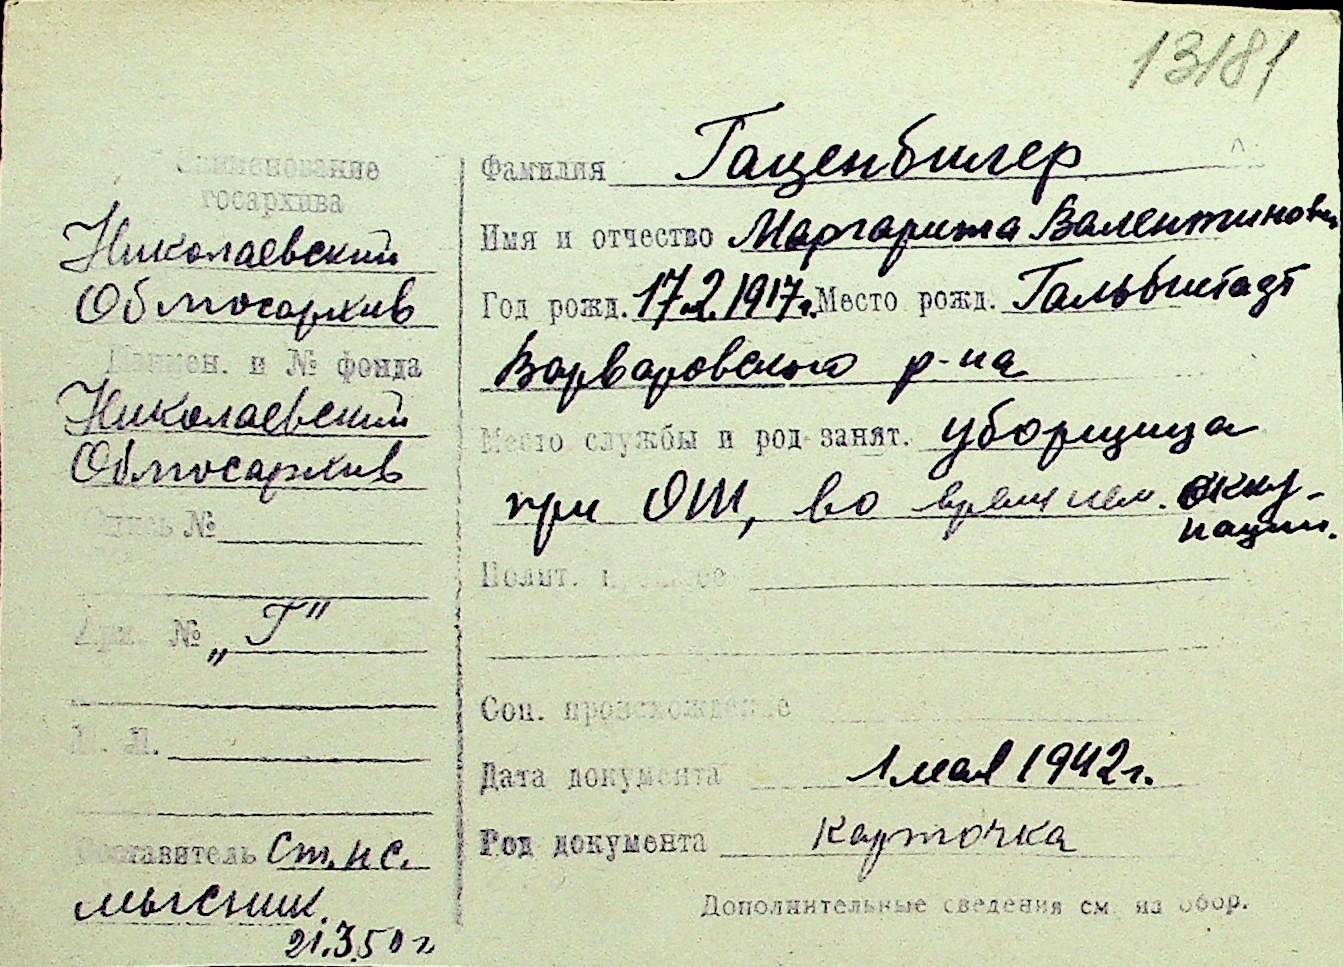 13181
Наименование
госархива
Николаевский
Облгосархив
Наимен. и № фонда
Николаевский
Облгосархив
Опись №
Арх. № „Г"
К. Л.
Составитель Ст. н с.
Мысник.
21.3.50 г
Фамилия Гаценбилер
Имя и отчество Маргарита Валентиновн
Год рожд. 17.2.1917г. Место рожд. Гальбштадт
Варваровского р-на
Место службы и род занят. уборщица
при ОШ, во врем нем. окку-
пации.
Полит. прошлое
Соц. происхождение
Дата документа 1 мая 1942г.
Род документа карточка
Дополнительные сведения см. на обор.